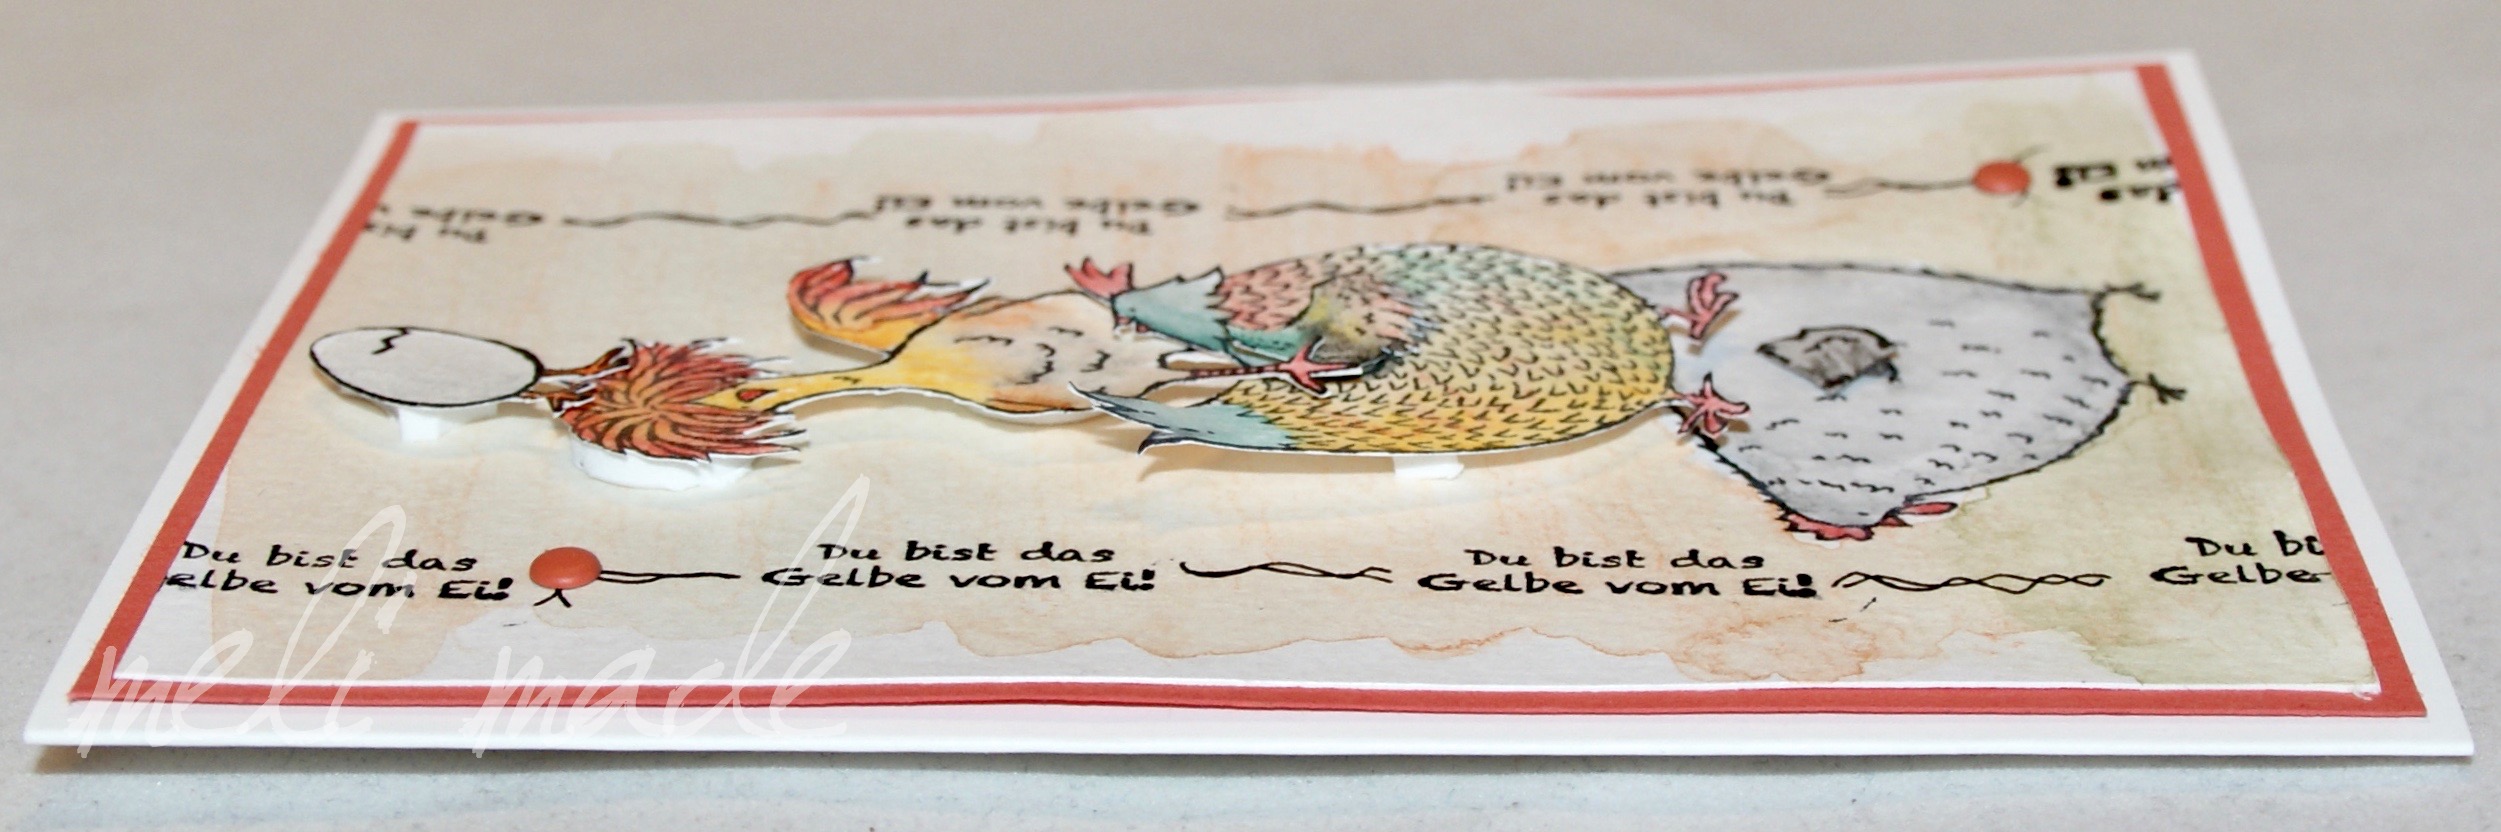 das
m Ei!
Du bist das
Gelbe vom Ei!
Du bist das
Gelbe vom Ei!
Du bis
Gelbe v
Du bist das
elbe vom Ei!
Du bist das
Gelbe vom Ei!
Du bist das
Gelbe vom Ei!
Du bi
Gelbe
meli made